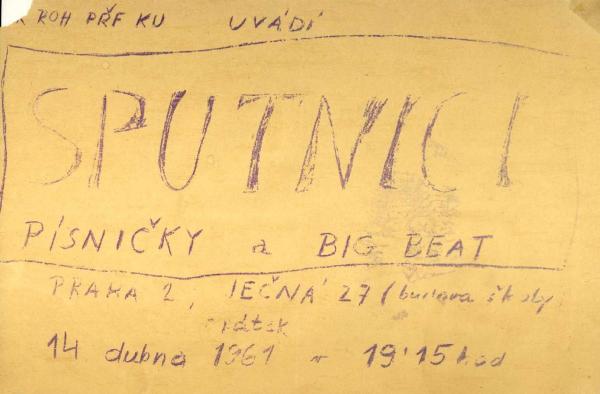 ROH PŘF KU UVÁDÍ
SPUTNICI
PÍSNIČKY a BIG BEAT
PRAHA 2, JEČNÁ 27 (budova školy
pátek
14 dubna 1961 v 19'15 hod